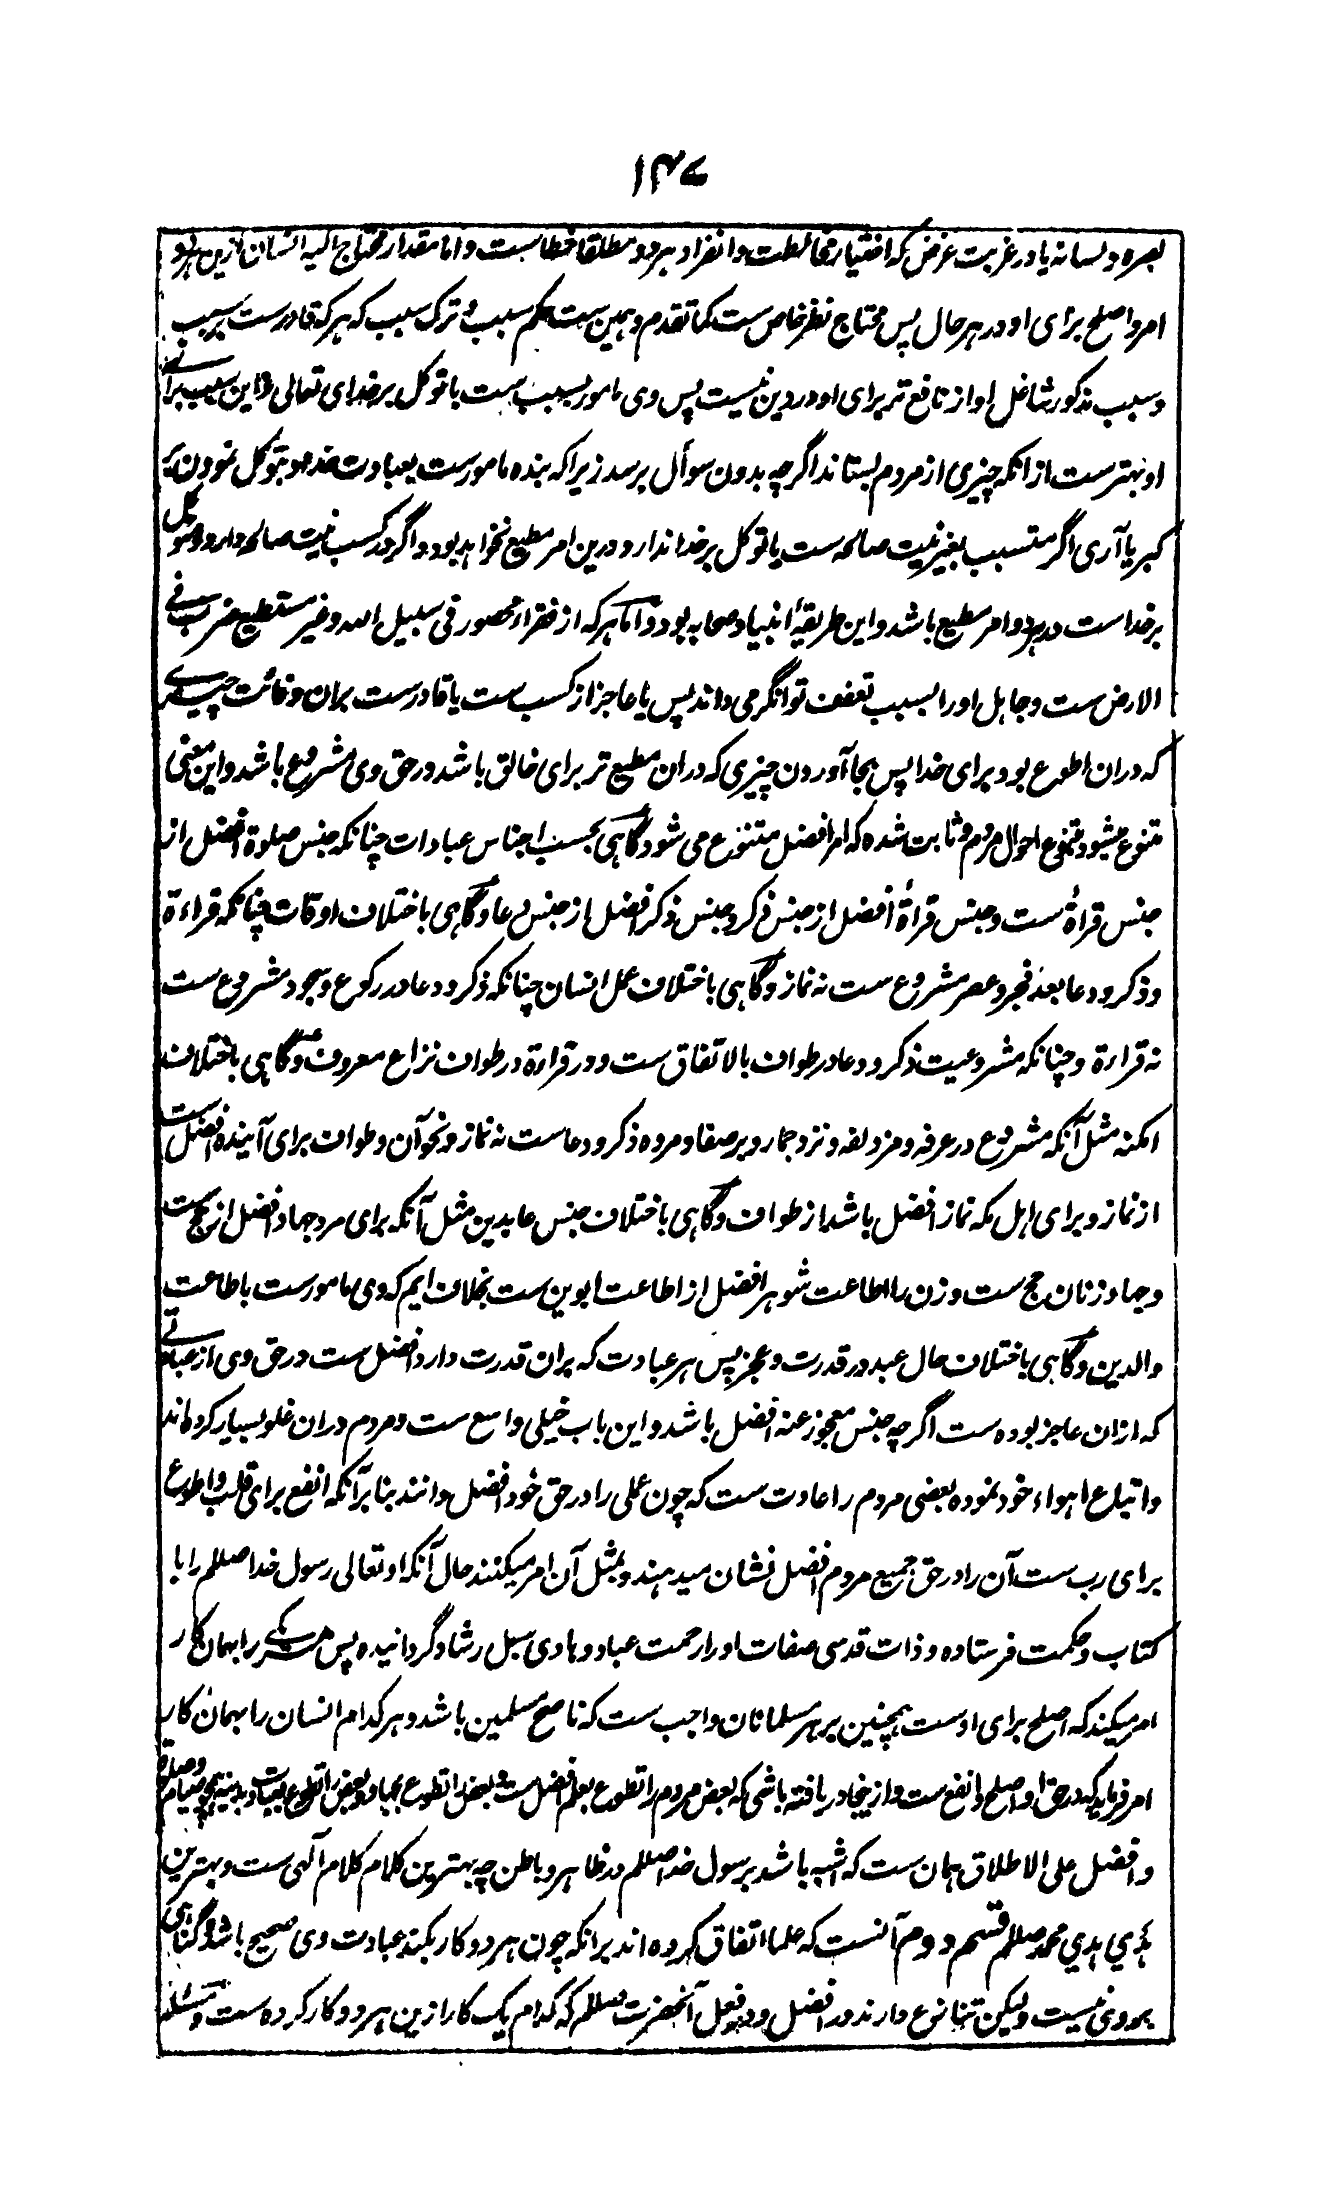 ۱۴۷
بصره و لسانه یا در غربت غرض که اختیار مخالطت و انفراد بهر دو مطلقا خطاست و اما مقدار محتاج الیه انسان ازین هر دو
امر و اصلح برای او در هر حال پس محتاج نظر خاص ست کما تقدم و همین ست حکم سبب و ترک سبب که هر که قادرست بر سبب
و سبب مذکور شاغل او از نافع تر برای او در دین نیست پس وی مامور بسبب ست با توکل بر خدای تعالی و این سبب برای
او بهترست از انکه چیزی از مردم بستاند اگرچه بدون سوال برسد زیرا که بنده مامورست بعبادت خدا و بتوکل نمودن بر
کبریا آری اگر متسبب بغیر نیت صالحه ست یا توکل بر خدا ندارد درین امر مطیع نخواهد بود و اگر در کسب نیت صالحه دارد و متوکل
بر خداست در هر دو امر مطیع باشد و این طریقهٔ انبیا و صحابه بود و اما هر که از فقراء محصور فی سبیل الله و غیر مستطیع ضرب فی
الارض ست و جاهل او را بسبب تعفف توانگر می داند پس یا عاجز از کسب ست یا قادرست بران و فائت چیزی
که دران اطوع بود برای خدا پس بجا آوردن چیزی که دران مطیع تر برای خالق باشد در حق وی مشروع باشد و این معنی
متنوع میشود بتنوع احوال مردم و ثابت شده که امر افضل متنوع می شود گاهی بحسب اجناس عبادات چنانکه جنس صلوة افضل از
جنس قراة ست و جنس قراة افضل از جنس ذکر و جنس ذکر افضل از جنس دعا و گاهی باختلاف اوقات چنانکه قراءة
و ذکر و دعا بعد فجر و عصر مشروع ست نه نماز و گاهی باختلاف عمل انسان چنانکه ذکر و دعا در رکوع و سجود مشروع ست
نه قراءة و چنانکه مشروعیت ذکر و دعا در طواف بالاتفاق ست و در قراءة در طواف نزاع معروف و گاهی باختلاف
امکنه مثل آنکه مشروع در عرفه و مزدلفه و نزد جمار و بر صفا و مروه ذکر و دعاست نه نماز و نحو آن و طواف برای آینده افضل ست
از نماز و برای اهل مکه نماز افضل باشد از طواف و گاهی باختلاف جنس عابدین مثل آنکه برای مرد جهاد افضل از حج ست
و جهاد زنان حج ست و زن را اطاعت شوهر افضل از اطاعت ابوین ست بخلاف ایم که وی مامورست باطاعت
والدین و گاهی باختلاف حال عبد در قدرت و عجز پس هر عبادت که بران قدرت دارد افضل ست در حق وی از عباداتی
که ازان عاجز بوده ست اگرچه جنس معجوز عنه افضل باشد و این باب خیلی واسع ست و مردم دران غلو بسیار کرده اند
و اتباع اهواء خود نموده بعضی مردم را عادت ست که چون عملی را در حق خود افضل دانند بنا بر آنکه انفع برای قلب و اطوع
برای رب ست آن را در حق جمیع مردم افضل نشان میدهند و بمثل آن امر میکنند حال آنکه او تعالی رسول خدا صللم را با
کتاب و حکمت فرستاده و ذات قدسی صفات او را رحمت عباد و هادی سبل رشاد گردانیده پس هر یکے را بهمان کار
امر میکند که اصلح برای اوست همچنین بر هر مسلمانان واجب ست که ناصح مسلمین باشد و هر کدام انسان را بهمان کار
امر فرماید که در حق او اصلح و انفع ست و ازینجا دریافته باشی که بعض مردم را تطوع بعلم افضل ست و بعض را تطوع بجهاد و بعض را تطوع بعبادات بدنیه همچو صیام و صلوة
و افضل علی الاطلاق همان ست که اشبه باشد برسول خدا صللم در ظاهر و باطن چه بهترین کلام کلام آلهی ست و بهترین
هدي هدي محمد صللم قسم دوم آنست که علما اتفاق کرده اند برانکه چون هر دو کار بکند عبادت وی صحیح باشد و گناهی
بروی نیست ولیکن تنازع دارند در افضل و در فعل آنحضرت صللم که کدام یک کار ازین هر دو کار کرده ست و مسئله